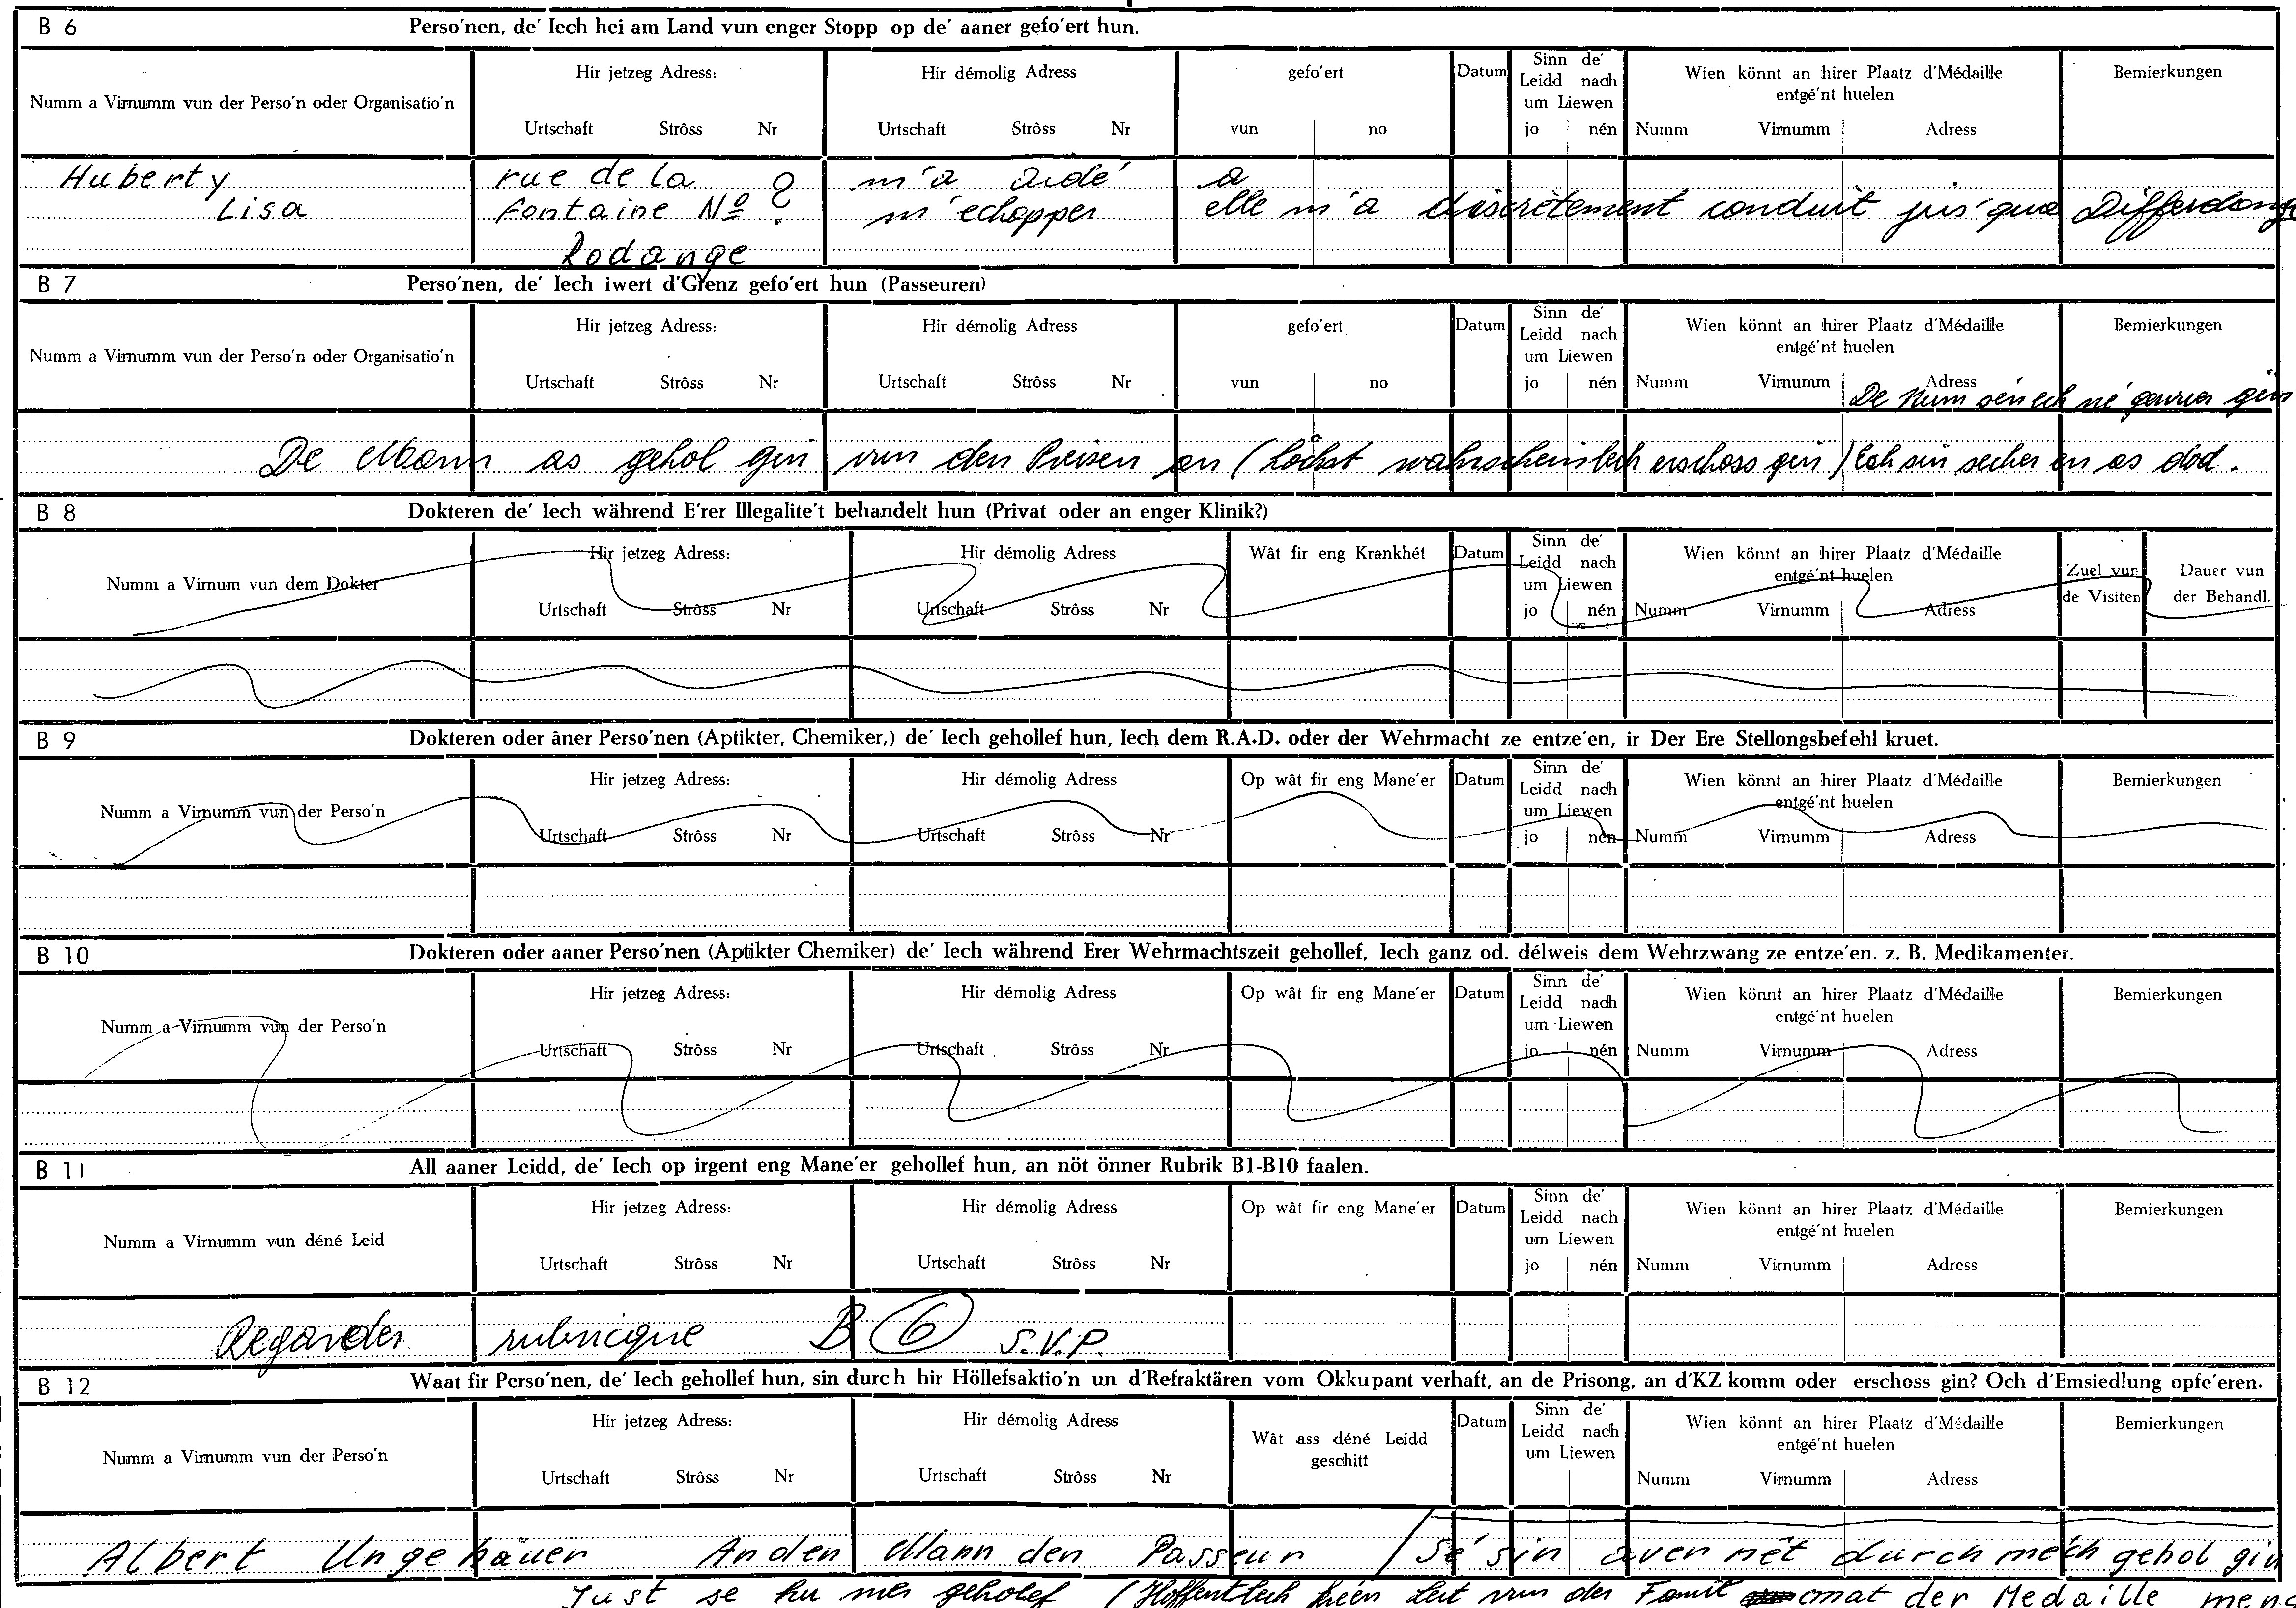 B 6 Perso'nen, de' Iech hei am Land vun enger Stopp op de' aaner gefo'ert hun.
Numm a Virnumm vun der Perso'n oder Organisatio'n
Hir jetzeg Adress:
Urtschaft Strôss Nr
Hir démolig Adress
Urtschaft Strôss Nr
gefo'ert
vun no
Datum
Sinn de'
Leidd nach
um Liewen
jo nén
Wien könnt an hirer Plaatz d'Médaille
entgé'nt huelen
Numm Virnumm Adress
Bemierkungen
Huberty rue de la ? m'a aidé a
Lisa Fontaine Nº m'echapper elle m'a discrètement conduit jus'qua Differdange
Rodange
B 7 Perso'nen, de' Iech iwert d'Grenz gefo'ert hun (Passeuren)
Numm a Virnumm vun der Perso'n oder Organisatio'n
Hir jetzeg Adress:
Urtschaft Strôss Nr
Hir démolig Adress
Urtschaft Strôss Nr
gefo'ert
vun no
Datum
Sinn de'
Leidd nach
um Liewen
jo nén
Wien könnt an hirer Plaatz d'Médaille
entgé'nt huelen
Numm Virnumm Adress
Bemierkungen
De Num
De Mann as gehol gin vun den Preisen an (höchst wahrscheinlech erschoss gin) Ech sin secher en as dod.
B 8 Dokteren de' Iech während E'rer Illegalite't behandelt hun (Privat oder an enger Klinik?)
Numm a Virnum vun dem Dokter
Hir jetzeg Adress:
Urtschaft Strôss Nr
Hir démolig Adress
Urtschaft Strôss Nr
Wât fir eng Krankhét
Datum
Sinn de'
Leidd nach
um Liewen
jo nén
Wien könnt an hirer Plaatz d'Médaille
entgé'nt huelen
Numm Virnumm Adress
Zuel vun
de Visiten
Dauer vun
der Behandl.
B 9 Dokteren oder âner Perso'nen (Aptikter, Chemiker,) de' Iech gehollef hun, Iech dem R.A.D. oder der Wehrmacht ze entze'en, ir Der Ere Stellongsbefehl kruet.
Numm a Virnumm vun der Perso'n
Hir jetzeg Adress:
Urtschaft Strôss Nr
Hir démolig Adress
Urtschaft Strôss Nr
Op wât fir eng Mane'er
Datum
Sinn de'
Leidd nach
um Liewen
jo nén
Wien könnt an hirer Plaatz d'Médaille
entgé'nt huelen
Numm Virnumm Adress
Bemierkungen
B 10 Dokteren oder aaner Perso'nen (Aptikter Chemiker) de' Iech während Erer Wehrmachtszeit gehollef, Iech ganz od. délweis dem Wehrzwang ze entze'en. z. B. Medikamenter.
Numm a Virnumm vun der Perso'n
Hir jetzeg Adress:
Urtschaft Strôss Nr
Hir démolig Adress
Urtschaft Strôss Nr
Op wât fir eng Mane'er
Datum
Sinn de'
Leidd nach
um Liewen
jo nén
Wien könnt an hirer Plaatz d'Médaille
entgé'nt huelen
Numm Virnumm Adress
Bemierkungen
B 11 All aaner Leidd, de' Iech op irgent eng Mane'er gehollef hun, an nöt önner Rubrik B1-B10 faalen.
Numm a Virnumm vun déné Leid
Hir jetzeg Adress:
Urtschaft Strôss Nr
Hir démolig Adress
Urtschaft Strôss Nr
Op wât fir eng Mane'er
Datum
Sinn de'
Leidd nach
um Liewen
jo nén
Wien könnt an hirer Plaatz d'Médaille
entgé'nt huelen
Numm Virnumm Adress
Bemierkungen
Regarder rubrique B 6 S.V.P.
B 12 Waat fir Perso'nen, de' Iech gehollef hun, sin durch hir Höllefsaktio'n un d'Refraktären vom Okkupant verhaft, an de Prisong, an d'KZ komm oder erschoss gin? Och d'Emsiedlung opfe'eren.
Numm a Virnumm vun der Perso'n
Hir jetzeg Adress:
Urtschaft Strôss Nr
Hir démolig Adress
Urtschaft Strôss Nr
Wât ass déné Leidd
geschitt
Datum
Sinn de'
Leidd nach
um Liewen
Wien könnt an hirer Plaatz d'Médaille
entgé'nt huelen
Numm Virnumm Adress
Bemierkungen
Albert Ungehäuer An den Mann den Passeur / Sé sin aver nët durch mech gehol gin
Just se hu mer geholef (Hoffentlech kréen Leit vun der Famil emat der Medaille